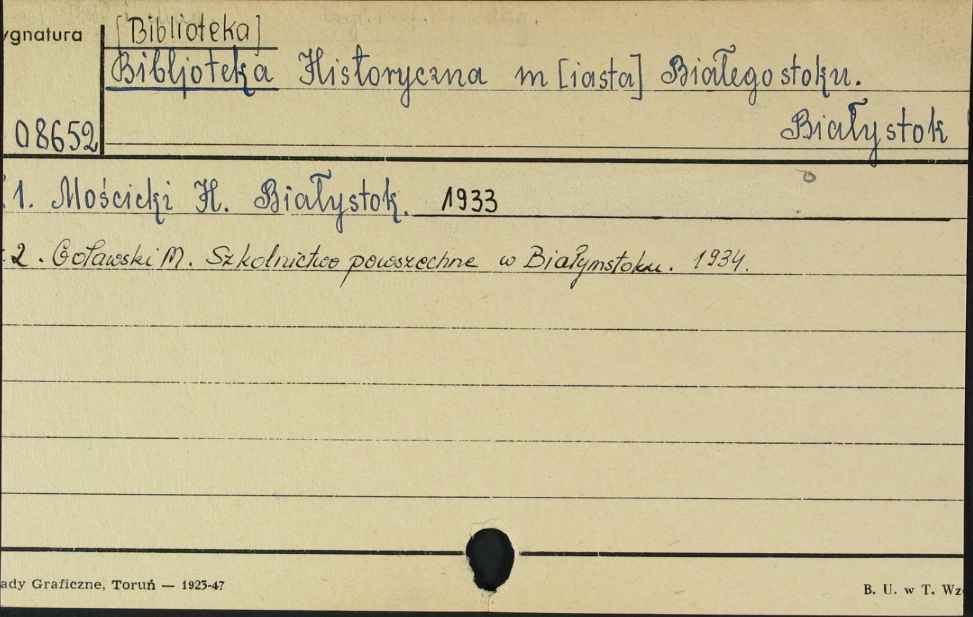 ygnatura
[Biblioteka]
Bibljoteka Historyczna m[iasta] Białegostoku.
08652
Białystok
1. Mościcki H. Białystok. 1933
2. Goławski M. Szkolnictwo powszechne w Białymstoku. 1934.
ady Graficzne, Toruń — 1923-47
B. U. w T. Wz